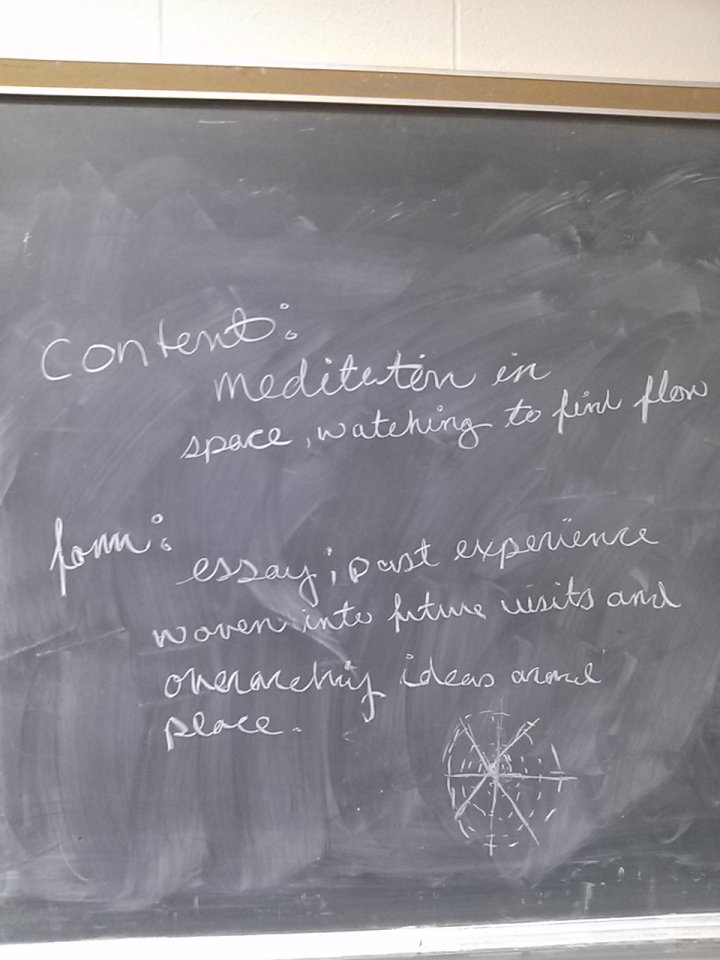 Content:
meditation in
space, watching to find flow
form:
essay; past experience
woven into future visits and
overarching ideas around
place.